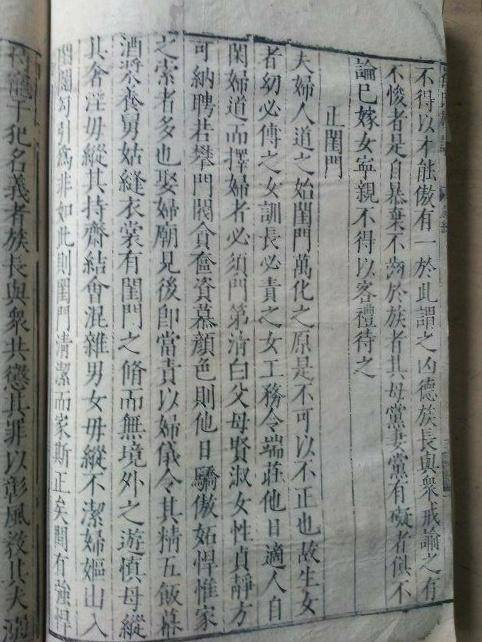 不得以才能傲有一於此謂之凶德族長與衆戒諭之有
不悛者是自暴棄不齒於族者其母黨妻黨有礙者俱不
論已嫁女寧親不得以客禮待之
正閨門
夫婦人道之始閨門萬化之原是不可以不正也故生女
者幼必傅之女訓長必責之女工務令端莊他日適人自
閑婦道而擇婦者必須門第清白父母賢淑女性貞靜方
可納聘若攀門閥貪奩資慕顔色則他日驕傲妬悍惟家
之索者多也娶婦廟見後即當責以婦儀令其精五飯冪
酒漿養舅姑縫衣裳有閨門之脩而無境外之遊慎毋縱
其奢淫毋縱其持齋結會混雜男女毋縱不潔婦嫗出入
閨閫勾引爲非如此則閨門清潔而家斯正矣間有強悍
恃寵干犯名義者族長與衆共懲其罪以彰風教其夫溺